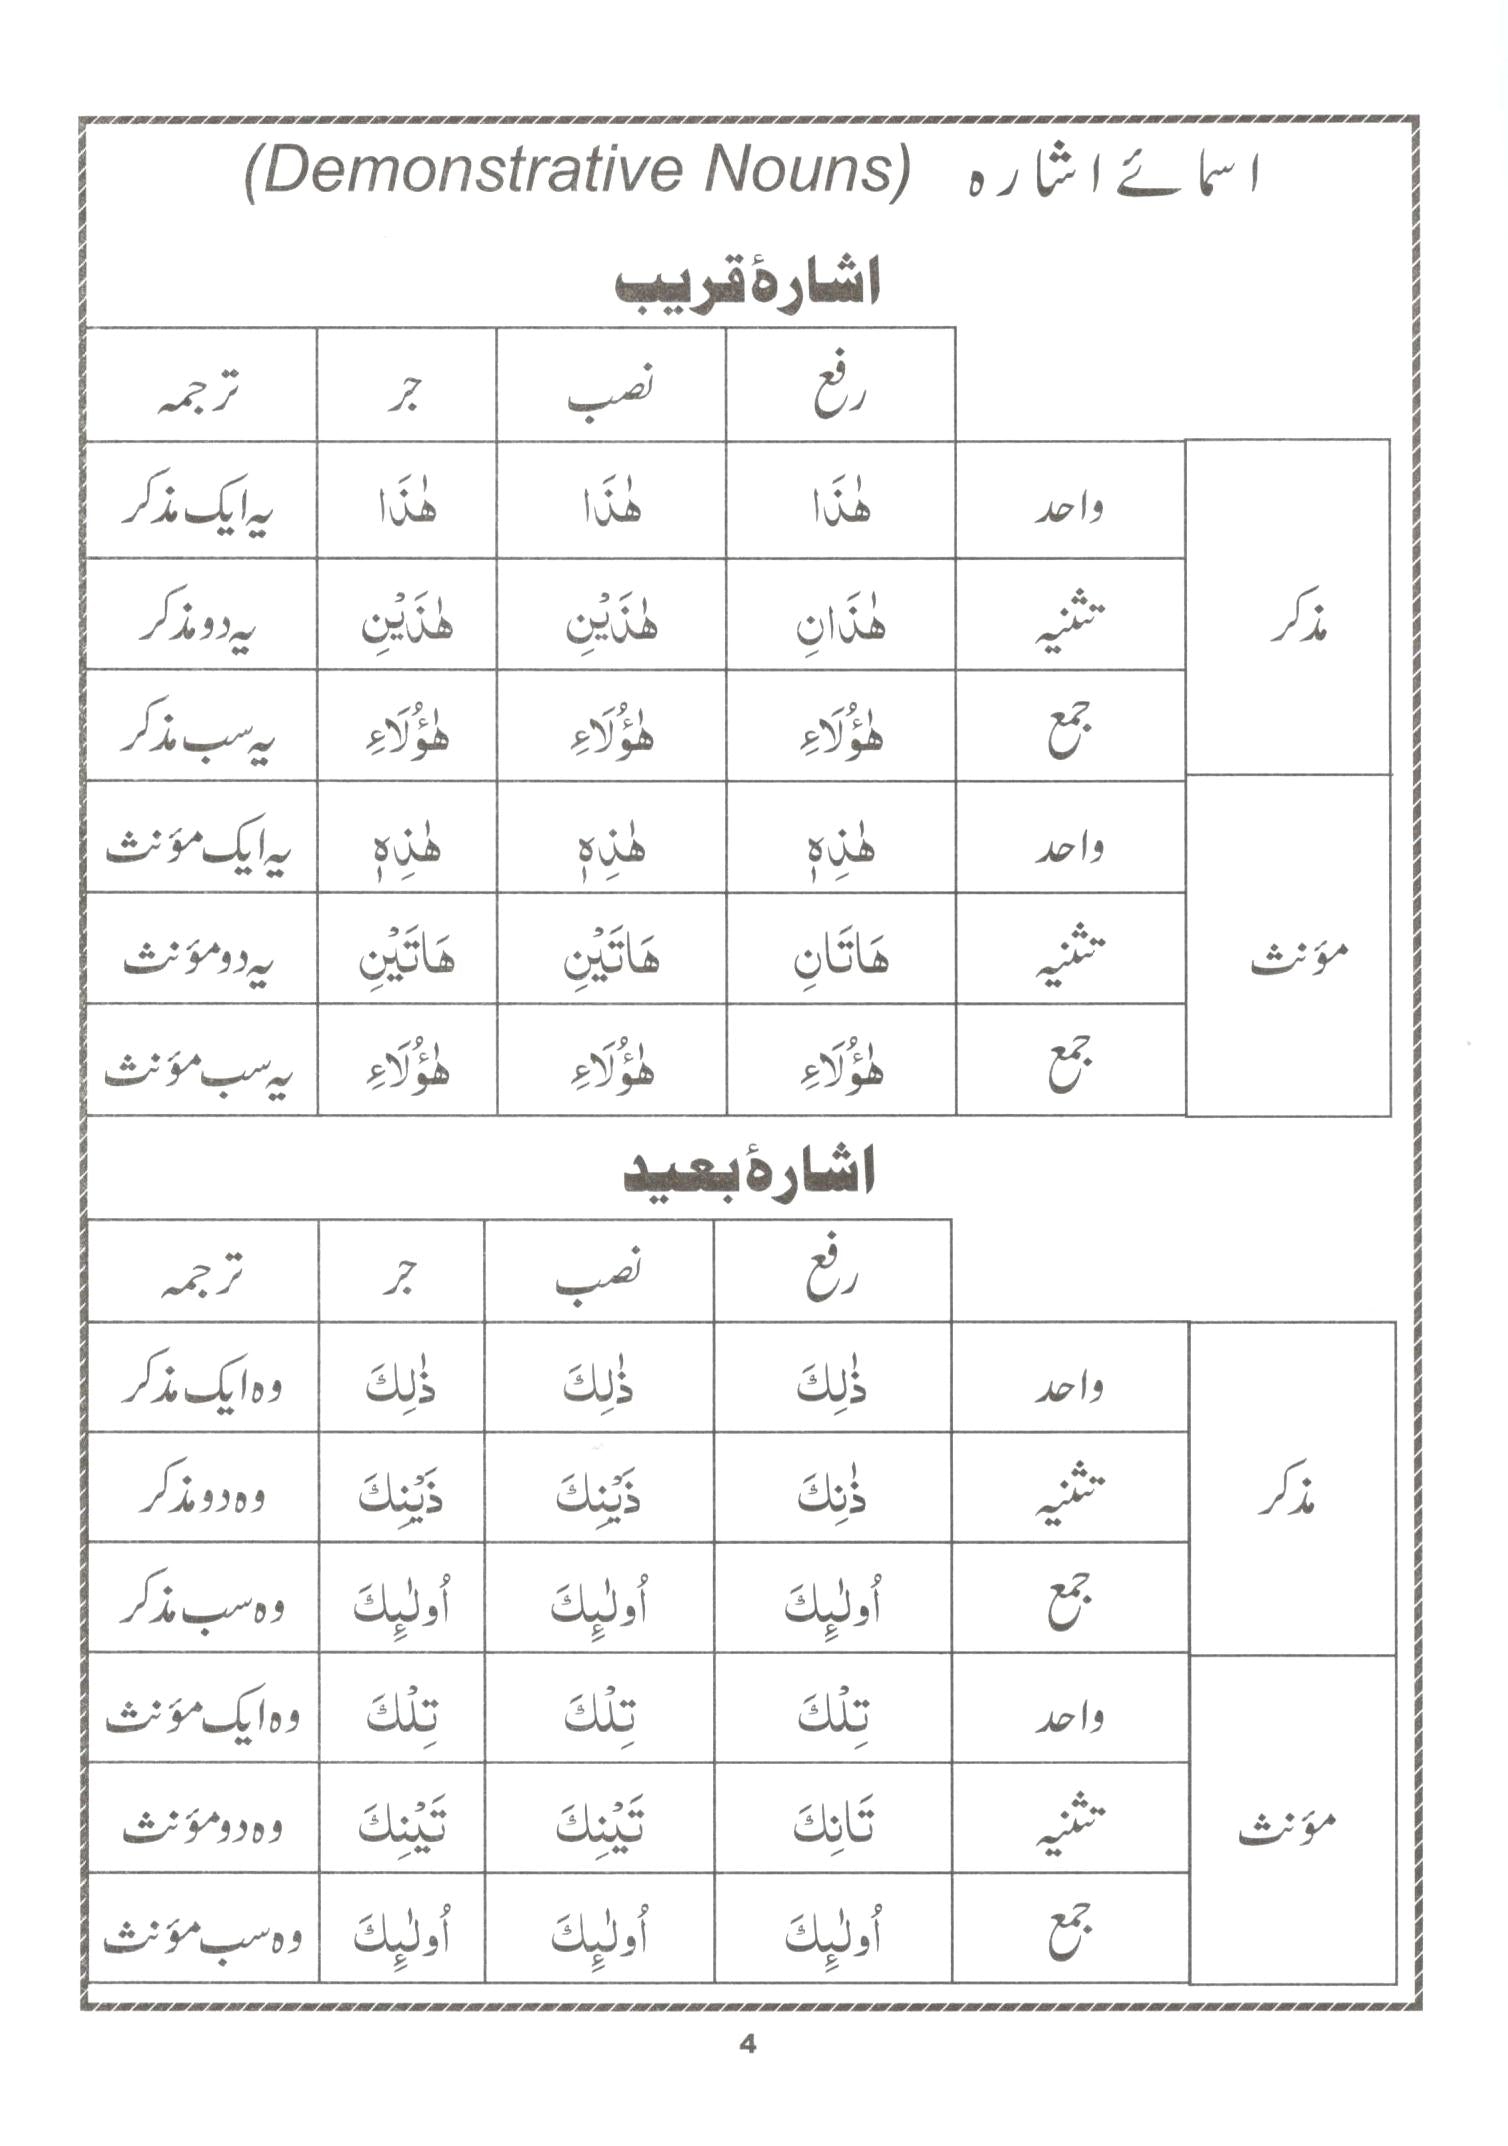 اسمائے اشارہ (Demonstrative Nouns)
اشارۂ قریب
رفع نصب جر ترجمہ
مذکر واحد هٰذَا هٰذَا هٰذَا یہ ایک مذکر
تثنیہ هٰذَانِ هٰذَيْنِ هٰذَيْنِ یہ دو مذکر
جمع هٰؤُلَاءِ هٰؤُلَاءِ هٰؤُلَاءِ یہ سب مذکر
مؤنث واحد هٰذِهٖ هٰذِهٖ هٰذِهٖ یہ ایک مؤنث
تثنیہ هَاتَانِ هَاتَيْنِ هَاتَيْنِ یہ دو مؤنث
جمع هٰؤُلَاءِ هٰؤُلَاءِ هٰؤُلَاءِ یہ سب مؤنث
اشارۂ بعید
رفع نصب جر ترجمہ
مذکر واحد ذٰلِكَ ذٰلِكَ ذٰلِكَ وہ ایک مذکر
تثنیہ ذٰنِكَ ذَيْنِكَ ذَيْنِكَ وہ دو مذکر
جمع اُولٰٓئِكَ اُولٰٓئِكَ اُولٰٓئِكَ وہ سب مذکر
مؤنث واحد تِلْكَ تِلْكَ تِلْكَ وہ ایک مؤنث
تثنیہ تَانِكَ تَيْنِكَ تَيْنِكَ وہ دو مؤنث
جمع اُولٰٓئِكَ اُولٰٓئِكَ اُولٰٓئِكَ وہ سب مؤنث
4